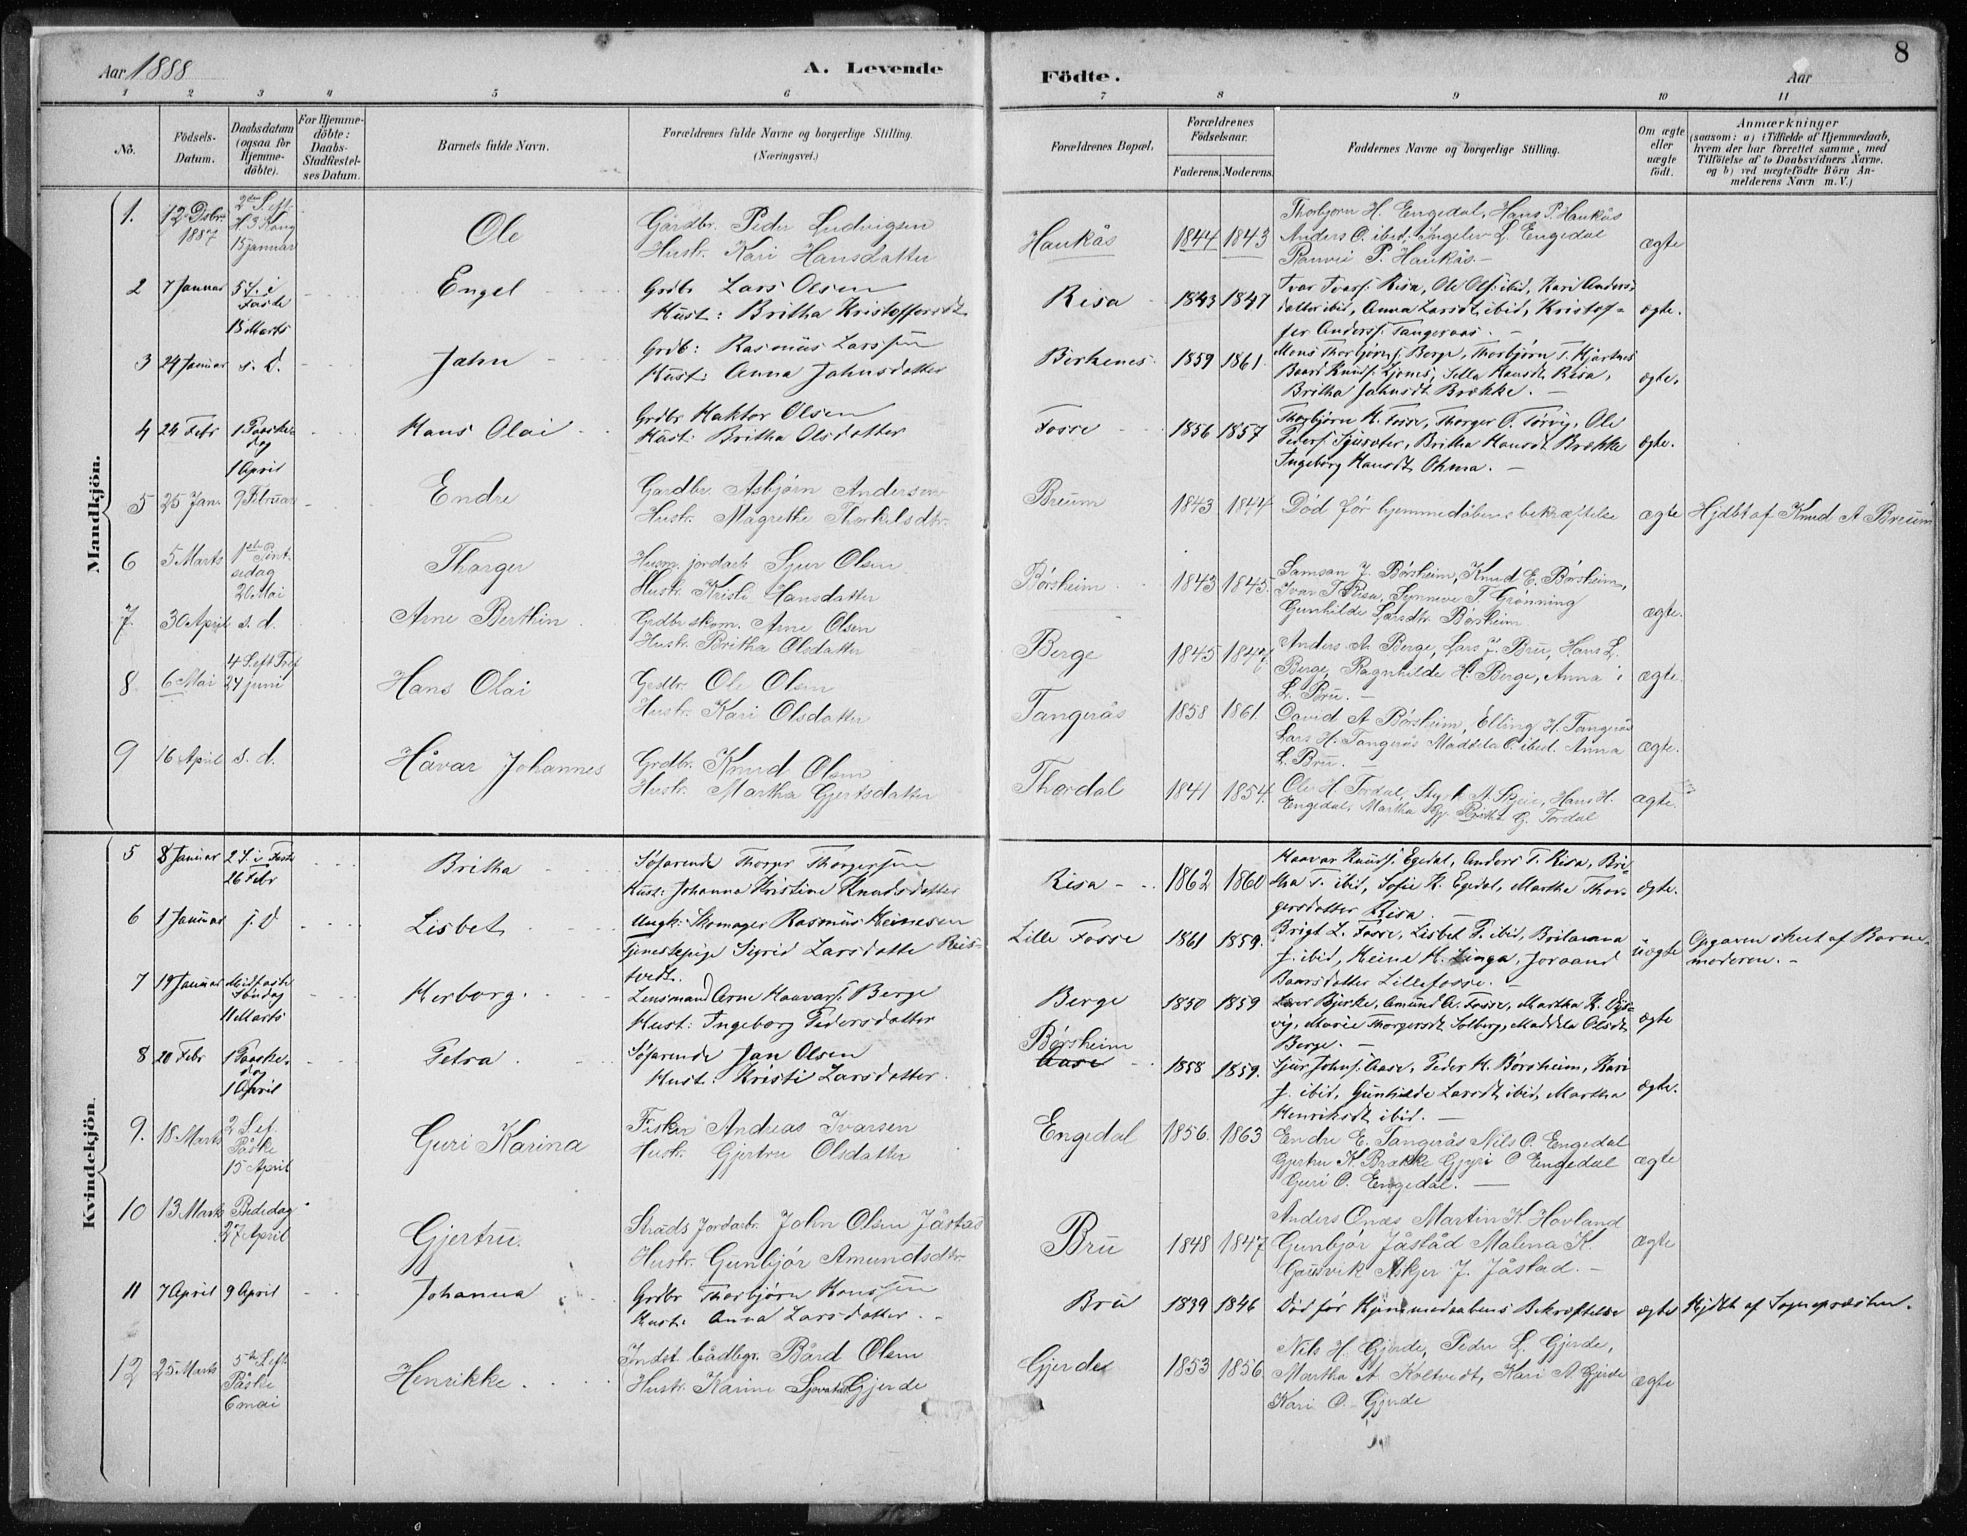 8
Aar 1888 A. Levende Födte. Aar
1 2 3 4 5 6 7 8 9 10 11
No. Födsels-Datum. Daabsdatum (ogsaa for Hjemme-döbte). For Hjemme-döbte: Daabs-Stadfæstel-ses Datum. Barnets fulde Navn. Forældrenes fulde Navne og borgerlige Stilling. (Næringsvei.) Forældrenes Bopæl. Forældrenes Födselsaar. Faderens. Moderens. Faddernes Navne og borgerlige Stilling. Om ægte eller uægte födt. Anmærkninger (saasom: a) i Tilfælde af Hjemmedaab, hvem der har forrettet samme, med Tilföielse af to Daabsvidners Navne. og b) ved uægtefödte Börn An-melderens Navn m. V.)
Mandkjön.
1. 12 Dsbr. 1887 2den S. eft. H. 3 Kong 15 januar Ole Gårdbr. Peder Ludvigsen
Hustr. Kari Hansdatter Haukås 1844 1843 Thorbjørn H. Engedal, Hans P. Haukås
Anders O. ibid; Ingelev L. Engedal
P. Haukås.— ægte
2 7 Januar 5 S. i Faste 18 Marts Engel Grdbr Lars Olsen
Hust: Britha Kristoffersdt Risa 1843 1847 Ivar Ivars. Risa, Ole Ols. ibid, Kari Anders-
datter ibid, Anna Larsdt. ibid, Kristof-
fer Anderss. Tangeraas. — ægte.
3 24 Januar s. D. Jahn Grdb: Rasmus Larssen
Hust: Anna Jahnsdatter Birkenes 1859 1861. Mons Thorbjørns. Berge, Thorbjørn T. Kjartnes
Baard Knuds. Ljones, Silla Hansdt. Risa,
Britha Jahnsdt Brække. — ægte.
4 24 Febr 1 Paaske-dag 1 April Hans Olai Grdbr Haktor Olsen
Hust: Britha Olsdatter Fosse 1856 1857 Thorbjørn H. Fosse, Thorger O. Torvig, Ole
Peders. , Britha Hansdt Brække
Ingeborg Hansdt. Ohma. — ægte.
5 25 Jan. 9 Februar Endre Gardbr. Asbjørn Andersen
Hustr. Magrethe Thorkelsdtr. Breum 1843 1844 Død før hjemmedåbens bekræftelse ægte Hjdbt af Knud A Breum
6 5 Marts 1ste Pint-sedag 20 Mai Thorger Husm. jordarb Sjur Olsen
Hustr. Kristi Hansdatter Børsheim 1843 1845. Samson J. Børsheim, Knud E. Børsheim,
Ivar I. Risa, Synneve T. Grønning
Gunhilde Larsdtr. Børsheim ægte.
7. 30 April s. d. Arne Berthin Grdbr skom. Arne Olsen
Hustr. Britha Olsdatter Berge 1845 1847. Anders A. Berge, Lars J. Bru, Hans L.
Berge, Ragnhilde H. Berge, Anna
L. Bru. — ægte.
8 6 Mai 4 S. eft Tref 24 juni Hans Olai Grdbr. Ole Olsen
Hustr. Kari Olsdatter Tangerås 1858 1861. David A Børsheim, Elling H. Tangerås
Lars H. Tangerås Maddela O. ibid. Anna
L. Bru. — ægte.
9 16 April s. d. Håvar Johannes Grdbr. Knud Olsen
Hustr. Martha Gjertsdatter Thordal 1841 1854. Ole H Tordal, A. Skeie, Hans H.
Engedal, Martha Gj. Britha G. Tordal ægte.
Kvindekjön.
5 8 Januar 2 S. i Faste 26 Febr Britha Søfarende Thorger Thorgersen
Hust: Johanna Kristine Knudsdatter Risa 1862 1860 Haavar Knuds. Egedal, Anders T. Risa, Bri-
tha T. ibid, Sofie K. Egedal, Martha Thor-
gersdatter Risa. — ægte.
6 1 Januar s. D Lisbet Ungk: Skomager Rasmus Heinesen
Tjenestepige Sigrid Larsdatte Reis-
tvedt. Lille Fosse 1861 1859. Brigt L. Fosse, Lisbet T. ibid, Britanna
J. ibid, Heine H. Linga, Joraand
Baarsdatter Lillefosse. — uægte Opgaven skeet af Barne-
moderen. -
7 19 Januar Midfaste Søndag 11 Marts Herborg. Lensmand Arne Haavars. Berge
Hust: Ingeborg Pedersdatter Berge 1850 1859 Iver Bjerke, Amund A. Fosse, Martha K.
vig, Marie Thorgersdt Solberg, Maddela Olsdt
Berge. — ægte
8 20 Febr 1 Paaske-dag 1 April Petra Søfarende Jan Olsen
Hust: Kristi Larsdatter. Børsheim Aase 1858 1859. Sjur Johns. Aase, Peder H. Børsheim, Kari
J. ibid, Gunhilde Larsdt ibid, Martha
Henriksdt ibid. — ægte.
9. 18 Marts 2 S. ef. Påske 15 April Guri Karina Fisker Andreas Ivarsen
Hustr. Gjertru Olsdatter Engedal 1856. 1863 Endre E. Tangerås Nils O. Engedal
Gjertru K. Brække Gjyri O Engedal
Guri O. Engedal. — ægte
10 13 Marts Bededag 27 April Gjertru. Strads Jordarb. John Olsen Jåstad
Hustr. Gunbjør Amundsdtr. Bru 1848 1847 Anders Onæs Martin K. Hovland
Gunbjør Jåståd Malena K.
Gausvik Askjer J. Jåstad. — ægte
11 7 April 9 April Johanna Grdbr Thorbjørn Hanssen
Hust: Anna Larsdatter. Bru 1839 1846 Død før Hjemmedaabens Bekræftelse ægte Hjdbt af Sognepræsten.
12 25 Marts 5te S. eft Påske 6 mai Henrikke. Indst bådbgr. Bård Olsen
Hustr. Karine Gjerde Gjerde 1853 1856. Nils H. Gjerde, Peder L. Gjerde,
Martha A. Koltvedt, Kari A Gjerde
Kari O. Gjerde ægte